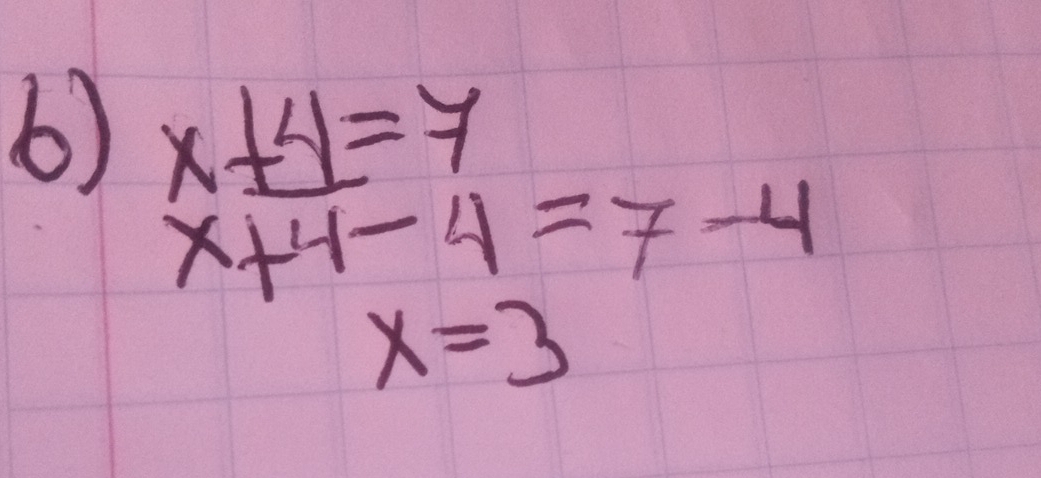 b) x+4=7
x+4-4=7-4
x=3